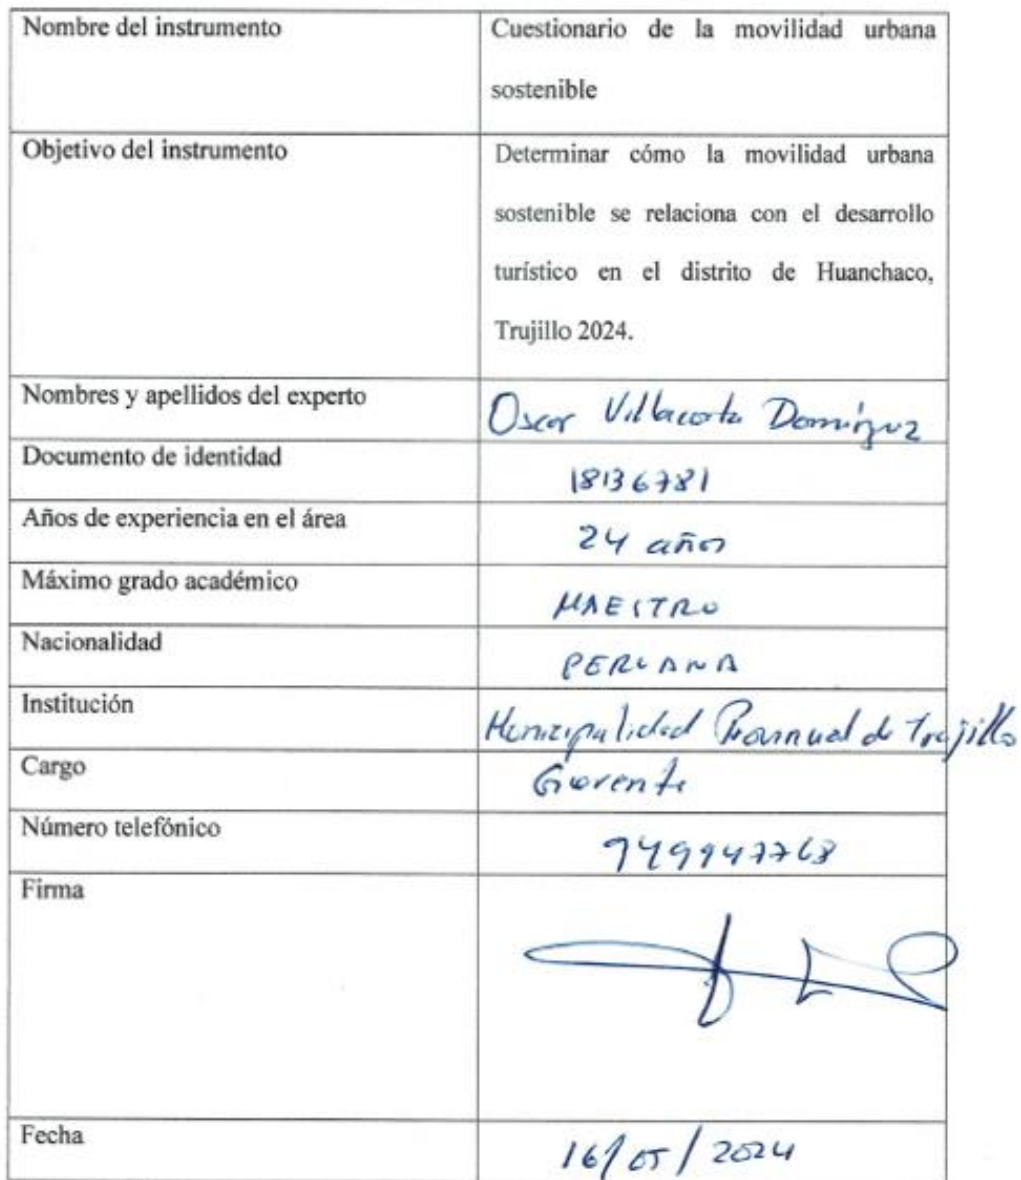 Nombre del instrumento
Cuestionario de la movilidad urbana
sostenible
Objetivo del instrumento
Determinar cómo la movilidad urbana
sostenible se relaciona con el desarrollo
turístico en el distrito de Huanchaco,
Trujillo 2024.
Nombres y apellidos del experto
Oscar Villacorta Domínguez
Documento de identidad
18136781
Años de experiencia en el área
24 años
Máximo grado académico
MAESTRO
Nacionalidad
PERUANA
Institución
Municipalidad Provincial de Trujillo
Cargo
Gerente
Número telefónico
949947768
Firma
Fecha
16/05/2024